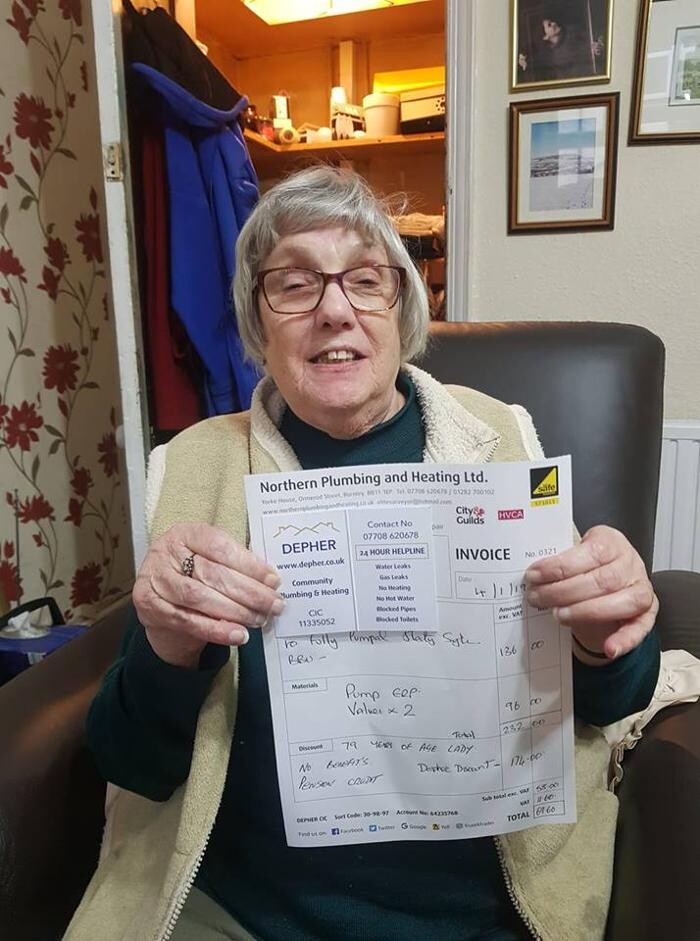 Northern Plumbing and Heating Ltd.
Yorke House, Ormerod Street, Burnley, BB11 1EP. Tel. 07708 620678 / 01282 700102
www.northernplumbingandheating.co.uk
safe
City&
Guilds
HVCA
DEPHER
www.depher.co.uk
Community
Plumbing & Heating
CIC
11335052
Contact No
07708 620678
24 HOUR HELPLINE
Water Leaks
Gas Leaks
No Heating
No Hot Water
Blocked Pipes
Blocked Toilets
INVOICE No. 0321
Date 4/1/19
Amount
exc. VAT
To Fully Pumped 136 00
Materials
Pump 96 00
Valves x 2
Total 232 00
Discount 79 YEARS OF AGE LADY
NO BENEFITS Depher Discount - 174.00
PENSION CREDIT
Sub total exc. VAT 58.00
VAT 11.60
TOTAL 69.60
DEPHER CIC Sort Code: 30-98-97 Account No: 64235768
Find us on: Facebook Twitter Google Yell